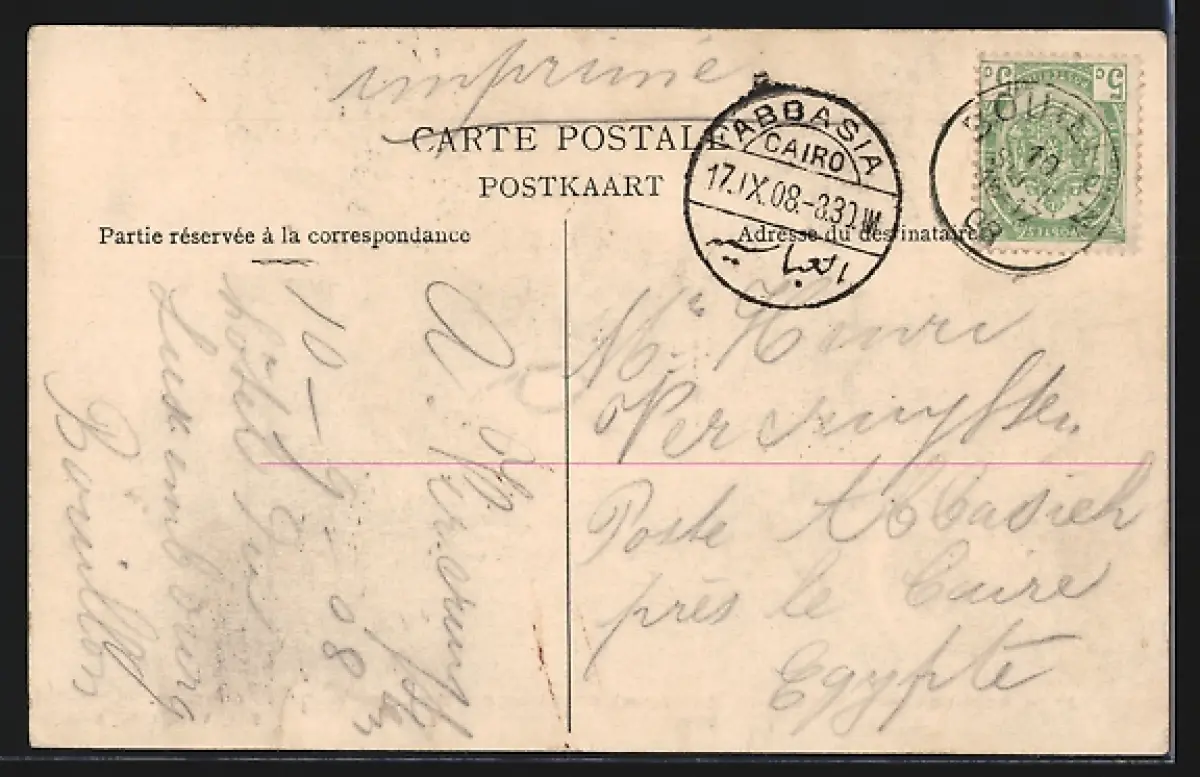 imprimé
CARTE POSTALE
POSTKAART
Partie réservée à la correspondance
Adresse du destinataire
ABBASIA
CAIRO
17.IX.08.-8.30
5c
5c
Mr Henri
Vercruyssen
Poste Abbasieh
près le Caire
Egypte
A. Vercruyssen
10-9-08
hôtel
Luxembourg
Bouillon